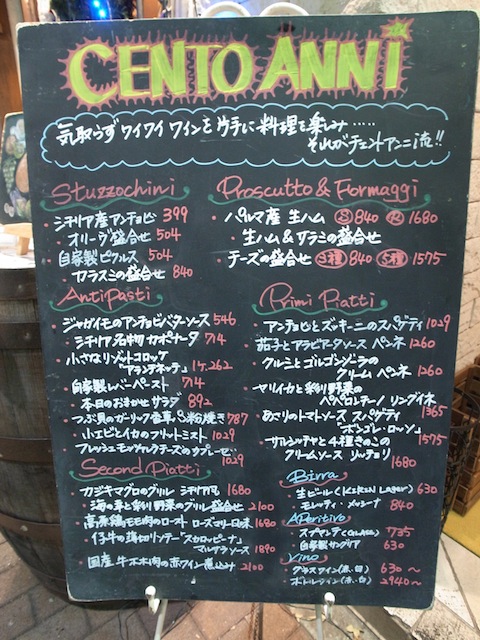 CENTO ANNI
気取らずワイワイワインを片手に料理を楽しみ……
それがチェントアンニ流!!
Stuzzochini
・シチリア産アンチョビ 399
・オリーヴ盛合せ 504
・自家製ピクルス 504
・カラスミの盛合せ 840
AntiPasti
・ジャガイモのアンチョビバターソース 546
・シチリア名物カポナータ 714
・小さなリゾットコロッケ
"アランチネッテ" 1ヶ.262
・自家製レバーペースト 714
・本日のおまかせサラダ 892
・つぶ貝のガーリック香草パン粉焼き 787
・小エビとイカのフリットミスト 1029
・フレッシュモッツァレラチーズのカプレーゼ
1029
Second Piatti
・カジキマグロのグリル シチリア風 1680
・海の幸と彩り野菜のグリル盛合せ 2100
・高原鶏モモ肉のロースト ローズマリー風味 1680
・仔牛の薄切りソテー"スカロッピーナ"
マルサラソース 1890
・国産牛ホホ肉の赤ワイン煮込み 2100
Proscutto & Formaggi
・パルマ産 生ハム Ⓢ 840 Ⓡ 1680
・生ハム&サラミの盛合せ
チーズの盛合せ 3種 840 5種 1575
Primi Piatti
・アンチョビとズッキーニのスパゲティ 1029
・茄子とアラビアータソース ペンネ 1260
・クルミとゴルゴンゾーラの
クリーム ペンネ 1260
・ヤリイカと彩り野菜の
ペペロンチーノ リングイネ
・あさりのトマトソース スパゲティ 1365
"ボンゴレ・ロッソ"
・サルシッチャと4種きのこの 1575
クリームソース リッチョリ
1680
Birra
・生ビール(Kirin Lager) 630
・モレッティ・メッシーナ 840
Aperitivo
・スプマンテ(Glass) 735
・自家製サングリア 630
Vino
・グラスワイン(赤、白) 630〜
・ボトルワイン(赤、白) 2940〜